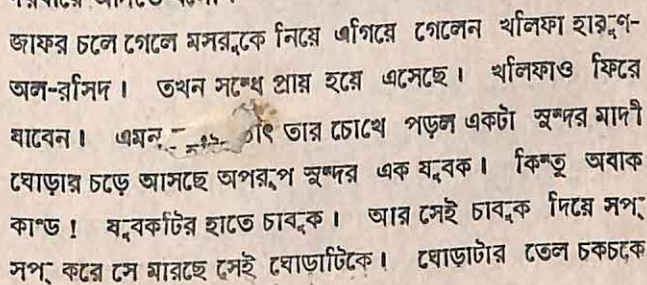 জাফর চলে গেলে মসরুকে নিয়ে এগিয়ে গেলেন খলিফা হারুণ-
অল-রসিদ। তখন সন্ধে প্রায় হয়ে এসেছে। খলিফাও ফিরে
যাবেন। এমন তার চোখে পড়ল একটা সুন্দর মাদী
ঘোড়ার চড়ে আসছে অপরূপ সুন্দর এক যুবক। কিন্তু অবাক
কাণ্ড! যুবকটির হাতে চাবুক। আর সেই চাবুক দিয়ে সপ্
সপ্ করে সে মারছে সেই ঘোড়াটিকে। ঘোড়াটার তেল চকচকে